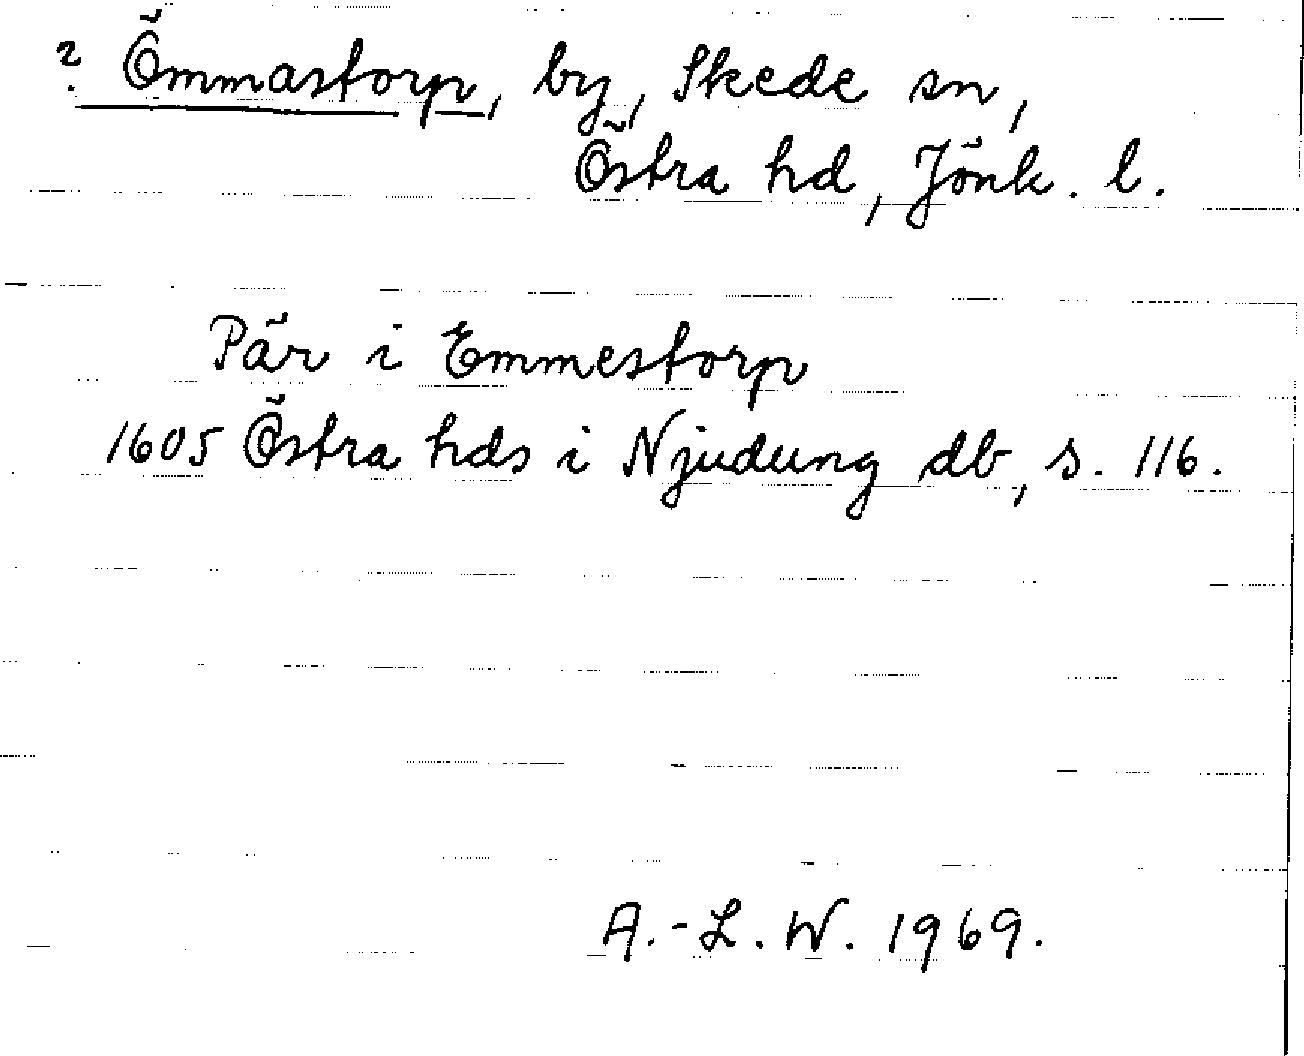 ? Ömmastorp, by, Skede sn,
Östra hd, Jönk. l.
Pär i Emmestorp
1605 Östra hds i Njudung db, s. 116.
A.-L. W. 1969.